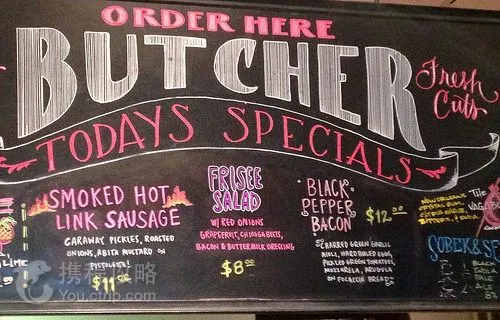 ORDER HERE
BUTCHER
Fresh
Cuts
TODAYS SPECIALS
SMOKED HOT
LINK SAUSAGE
CARAWAY PICKLES, ROASTED
ONIONS, ABITA MUSTARD ON
PISTOLETTE
$11.00
FRISEE
SALAD
W/ RED ONIONS
GRAPEFRUIT, CHIOGGA BEETS,
BACON & BUTTERMILK DRESSING
$8.00
BLACK
PEPPER
BACON
$12.00
CHARRED GREEN GARLIC
AIOLI, HARD BOILED EGGS,
PICKLED GREEN TOMATOES,
MOZZARELA, ARUGULA
ON FOCACCIA BREAD
NEW ORLEANS
BITTERS,
THE
VAGA
SOBEK & SE
BLACK
PALE
ALE
LIME
携程攻略
You.ctrip.com